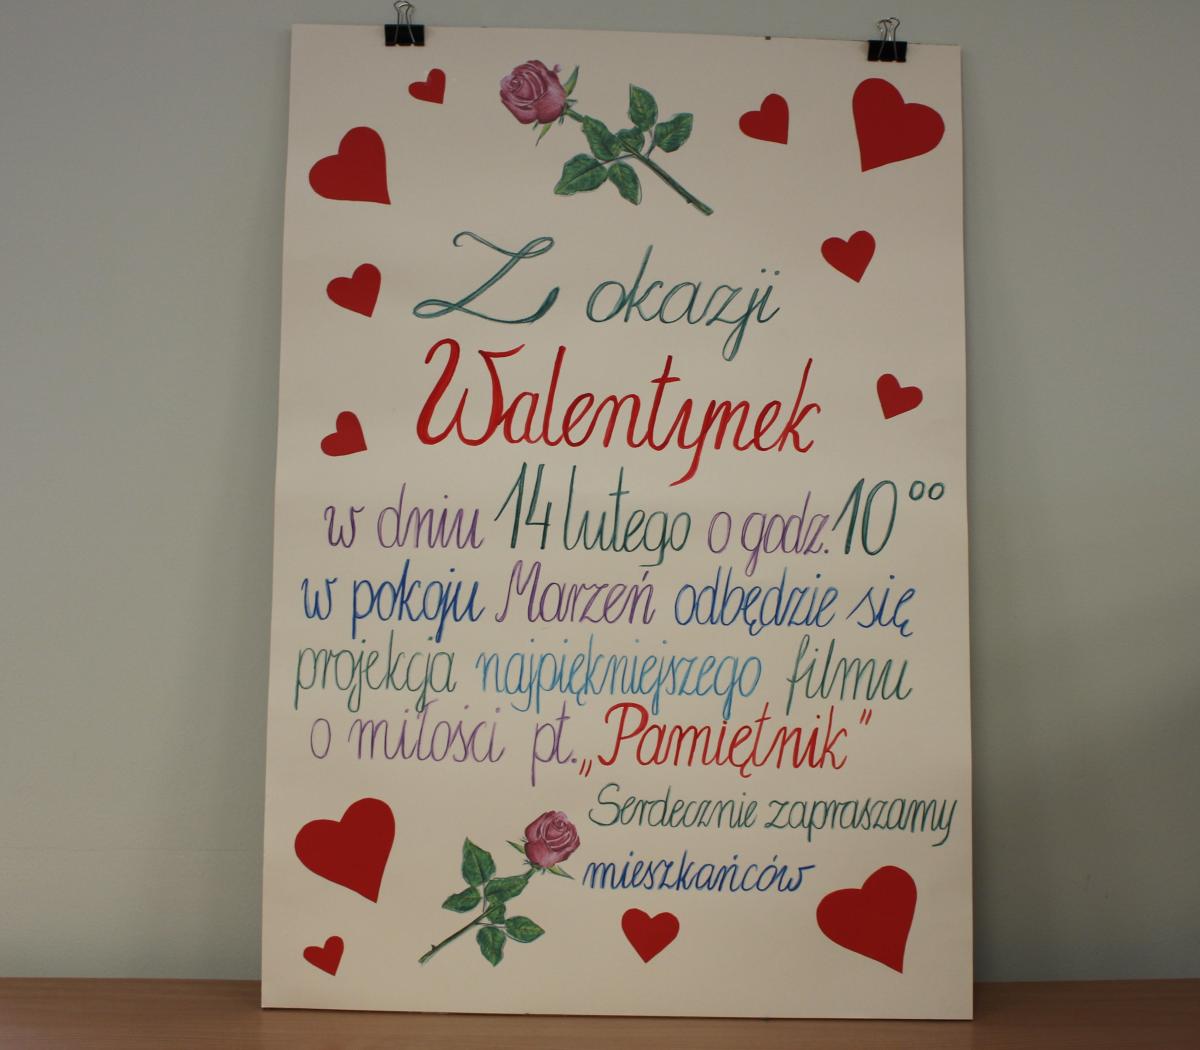 Z okazji
Walentynek
w dniu 14 lutego o godz. 10⁰⁰
w pokoju Marzeń odbędzie się
projekcja najpiękniejszego filmu
o miłości pt. „Pamiętnik”
Serdecznie zapraszamy
mieszkańców